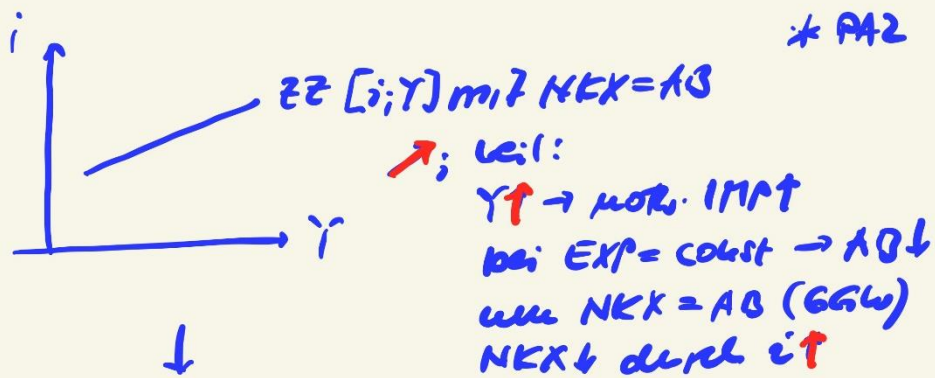 i
* PAZ
ZZ [i;Y] mit NKX = AB
↗; weil:
Y
Y↑ → notw. IMP↑
bei EXP = const → AB↓
um NKX = AB (GGW)
↓
NKX↓ durch i↑